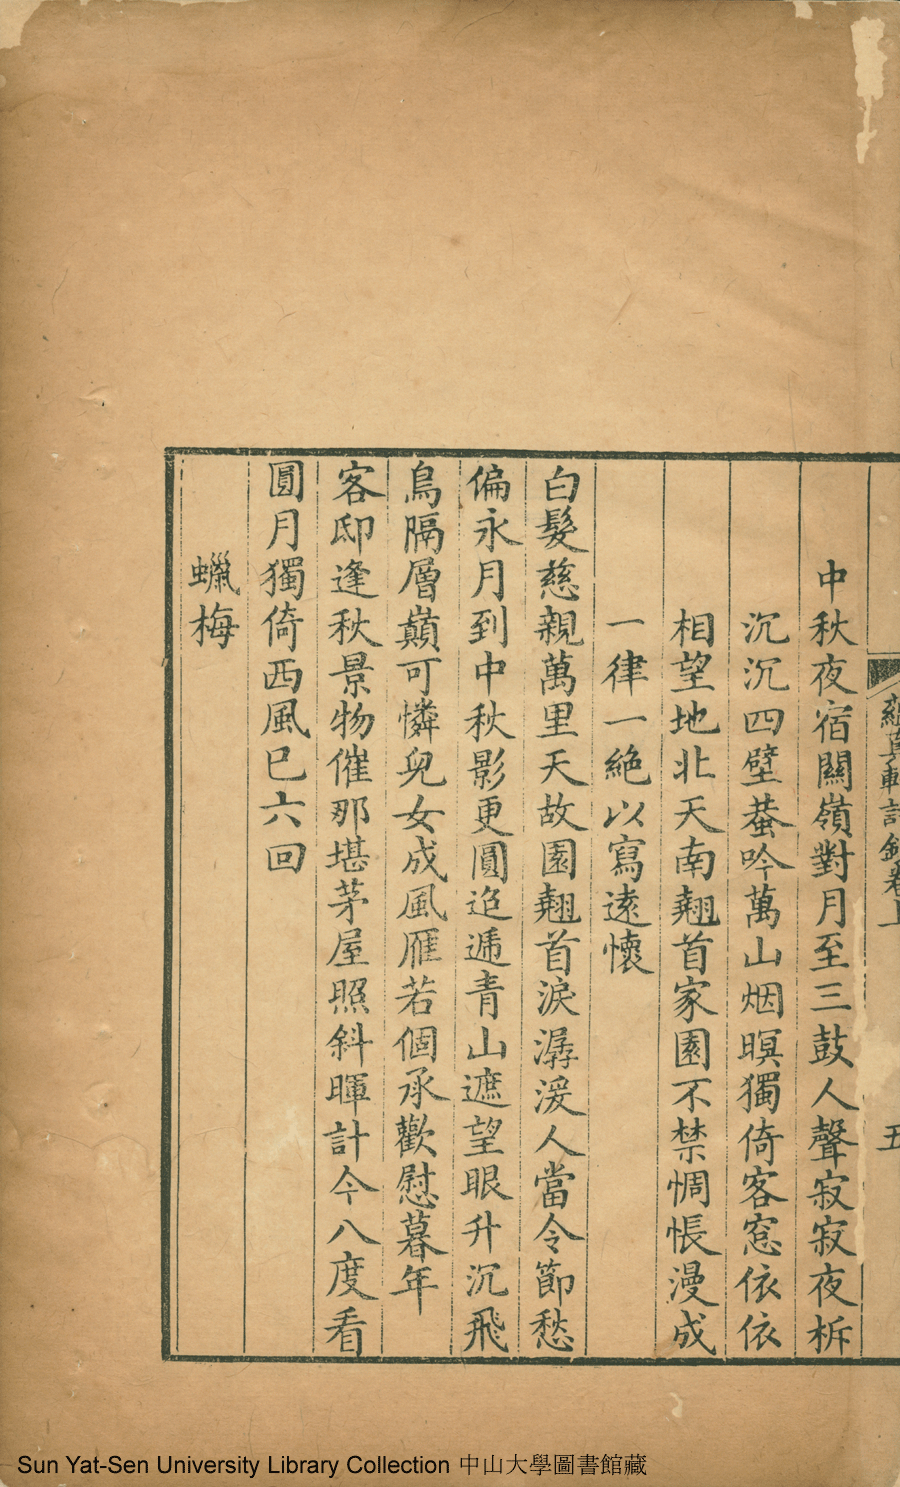 蘊真軒詩鈔卷上
五
中秋夜宿關嶺對月至三鼓人聲寂寂夜柝
沉沉四壁蛬吟萬山烟暝獨倚客窓依依
相望地北天南翹首家園不禁惆悵漫成
一律一絶以寫遠懷
白髮慈親萬里天故園翹首淚潺湲人當令節愁
偏永月到中秋影更圓迢遞青山遮望眼升沉飛
鳥隔層巔可憐兒女成風雁若個承歡慰暮年
客邸逢秋景物催那堪茅屋照斜暉計今八度看
圓月獨倚西風巳六回
蠟梅
Sun Yat-Sen University Library Collection 中山大學圖書館藏